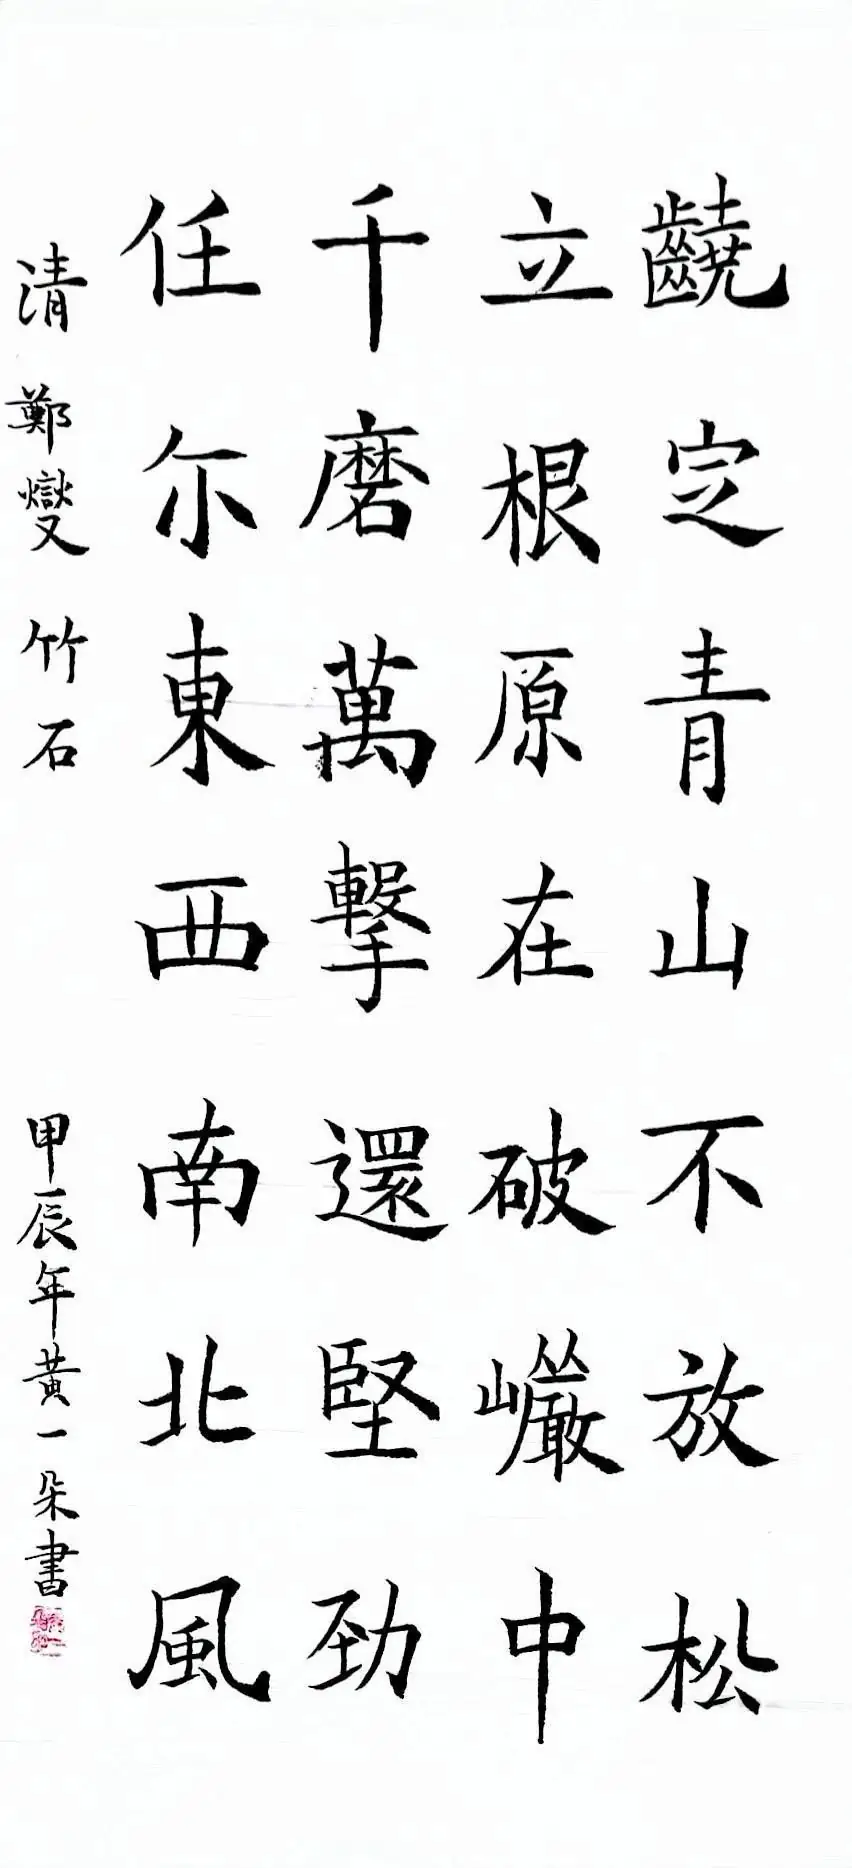 䶧定青山不放松
立根原在破巗中
千磨萬撃還堅勁
任尓東西南北風
清 鄭燮 竹石 甲辰年黄一朵書